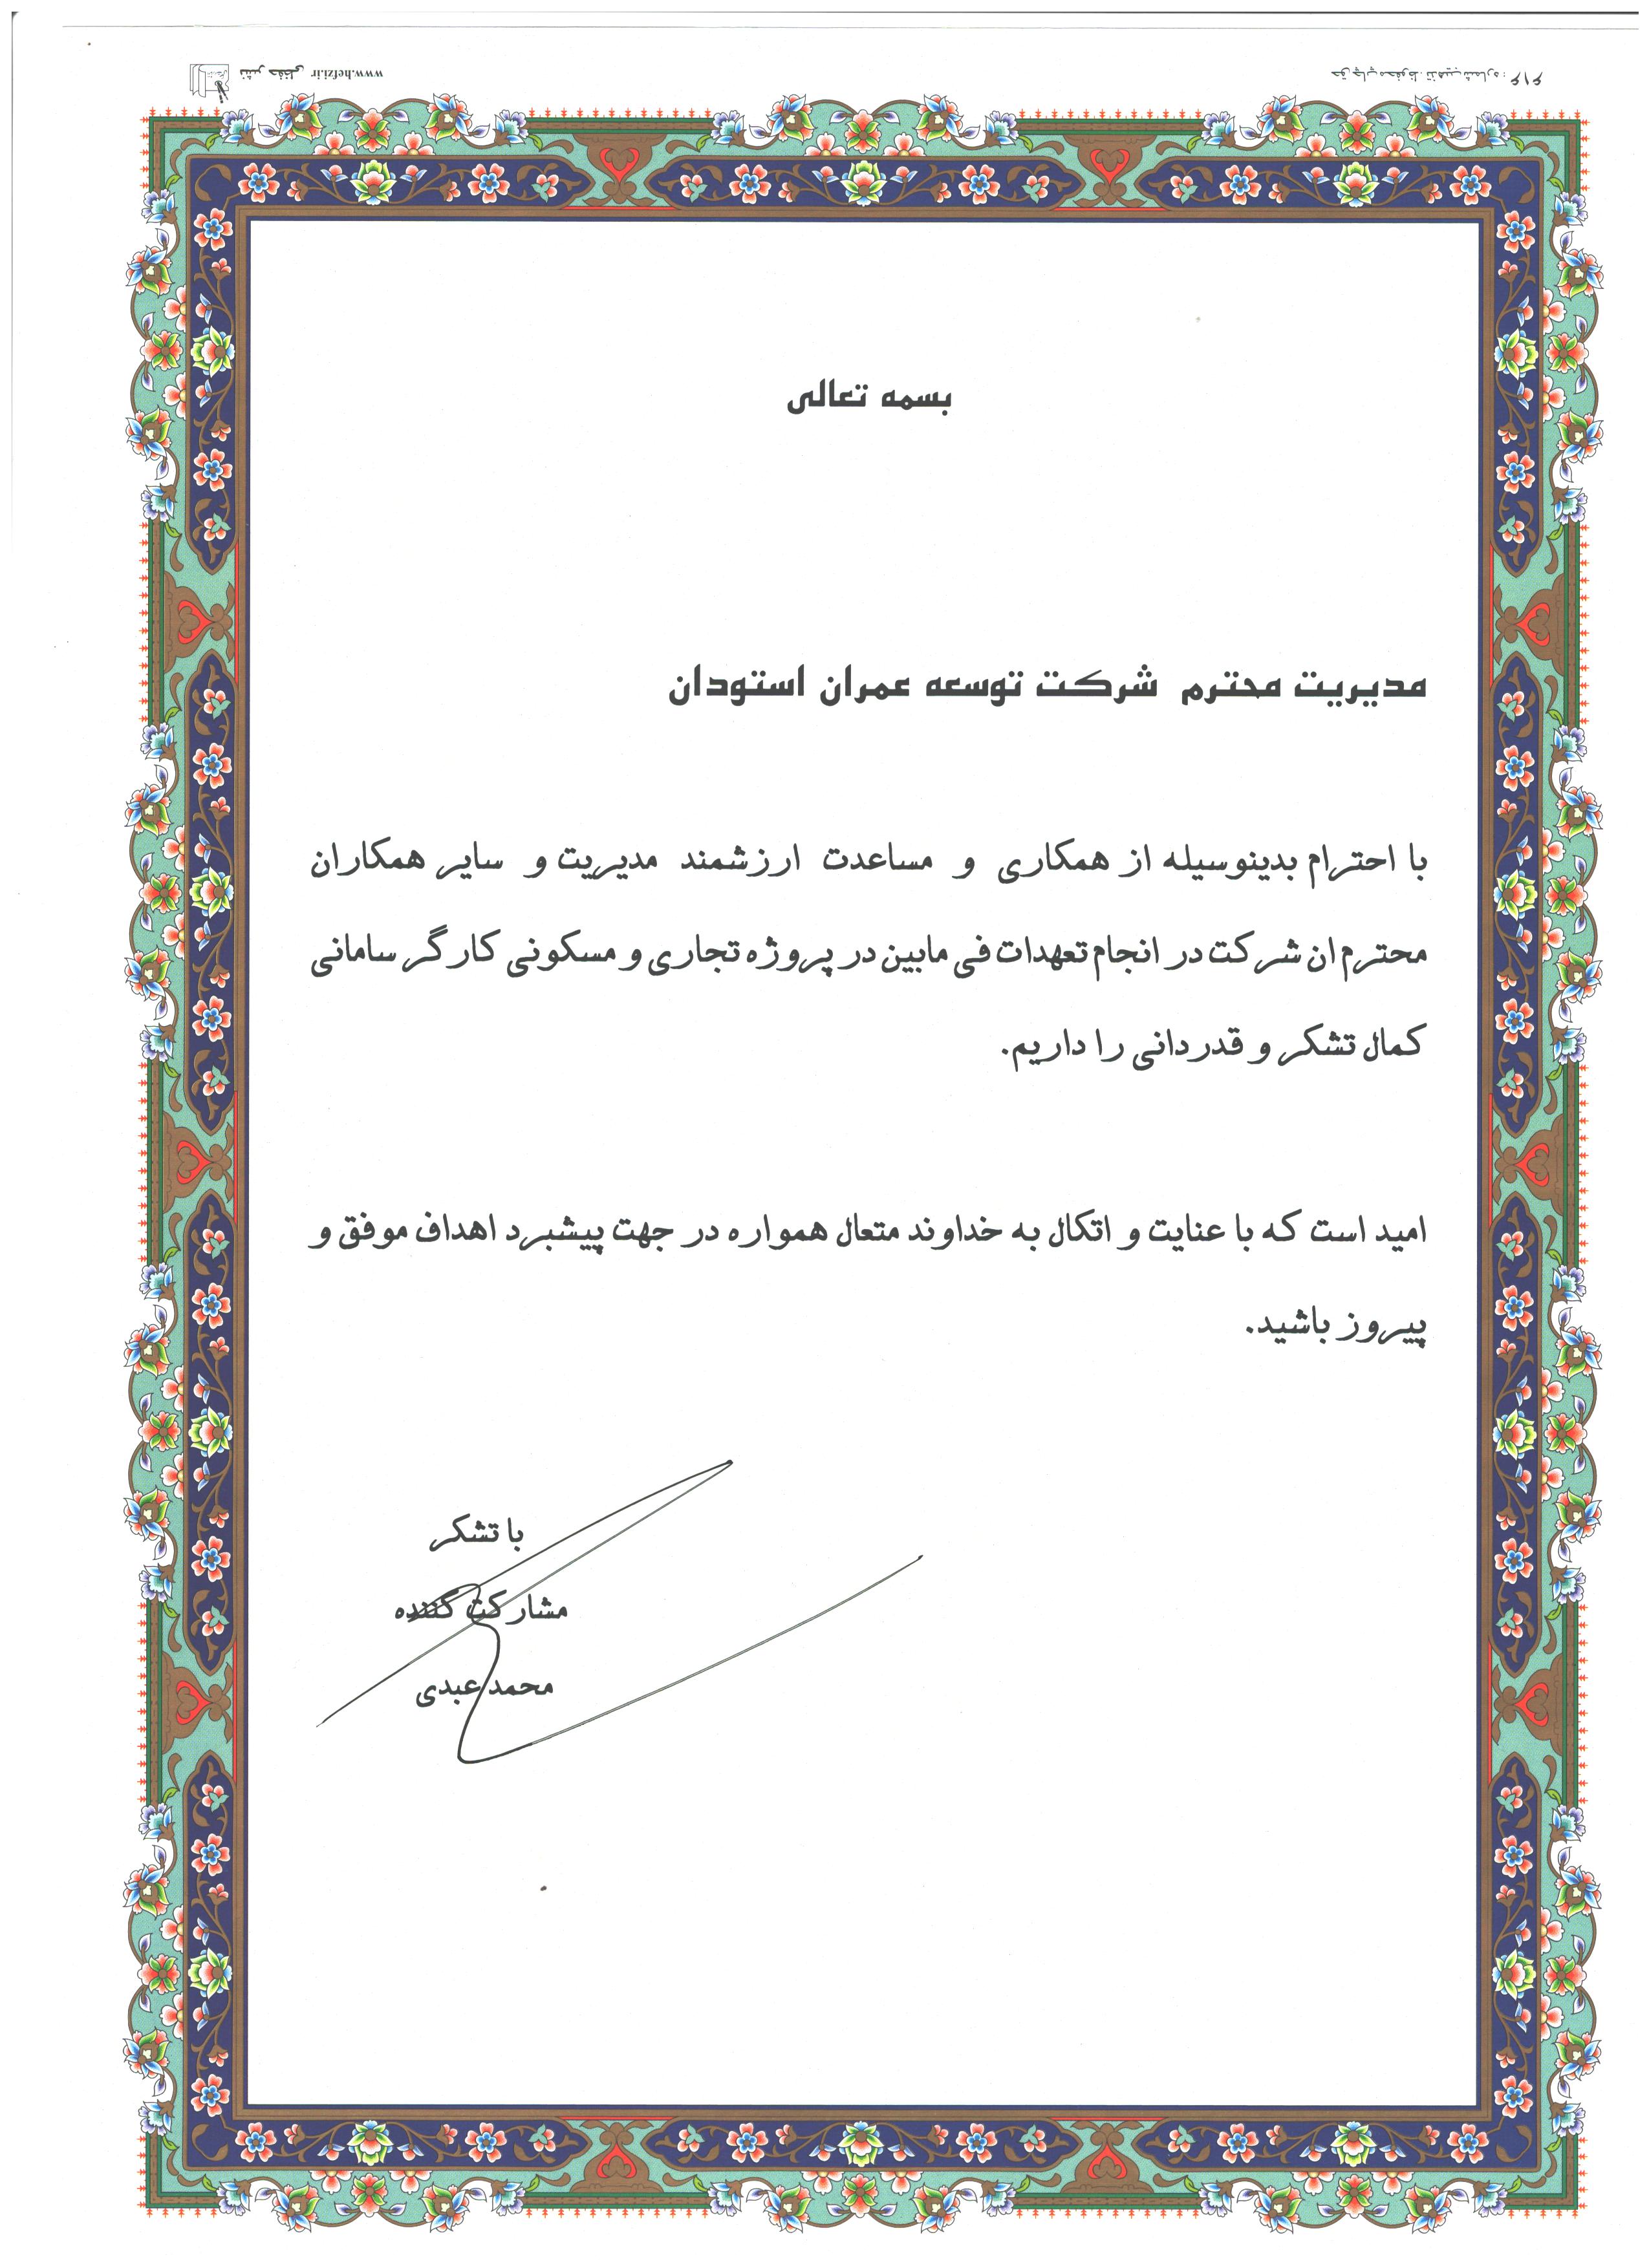 بسمه تعالی
مدیریت محترم شرکت توسعه عمران استودان
با احترام بدینوسیله از همکاری و مساعدت ارزشمند مدیریت و سایر همکاران
محترم ان شرکت در انجام تعهدات فی مابین در پروژه تجاری و مسکونی کارگر سامانی
کمال تشکر و قدردانی را داریم.
امید است که با عنایت و اتکال به خداوند متعال همواره در جهت پیشبرد اهداف موفق و
پیروز باشید.
با تشکر
مشارکت کننده
محمد عبدی
نشر حفظی www.hefzi.ir
حق چاپ محفوظ. تذهیب شماره: ۶۱۶